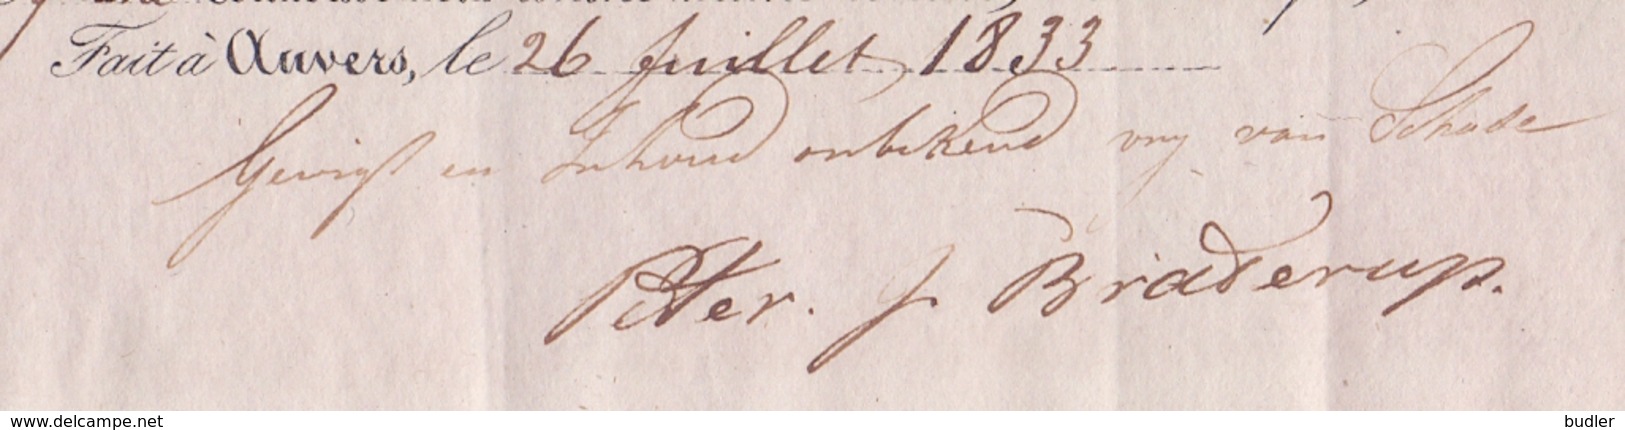 Fait à Anvers, le 26 Juillet 1833
Gewigt en Inhoud onbekend vry van Schade
Peter. J. Braderup.
www.delcampe.net
budler